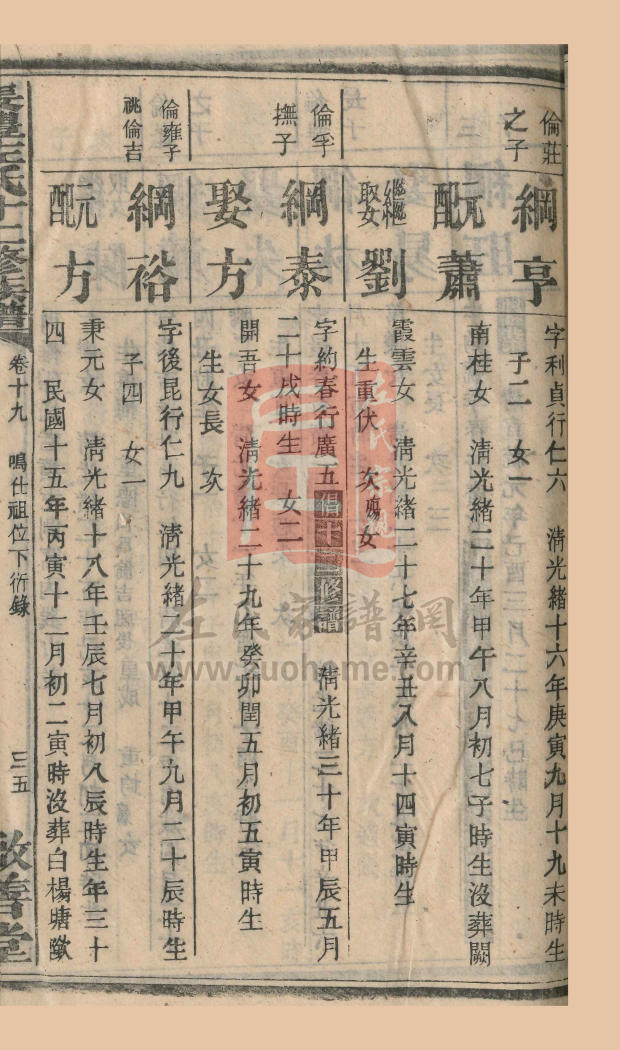 倫莊
之子
綱亨
字利貞行仁六 清光緒十六年庚寅九月十九未時生
子二 女一
配阮蕭
南桂女 清光緒二十年甲午八月初七子時生沒葬闕
繼娶劉
霞雲女 清光緒二十七年辛丑八月十四寅時生
生重伏 次殤 女
倫孚
撫子
綱泰
字約春行廣五 倡十三修譜 清光緒三十年甲辰五月
二十戌時生 女二
娶方
開吾女 清光緒二十九年癸卯閏五月初五寅時生
生女長 次
倫雍子
祧倫吉
綱裕
字後昆行仁九 清光緒二十年甲午九月二十辰時生
子四 女一
配阮方
秉元女 清光緒十八年壬辰七月初八辰時生年三十
四 民國十五年丙寅十二月初二寅時沒葬白楊塘
左氏十二修族譜
卷十九 鳴仕祖位下衍錄
三五
敬善堂
左氏宗親
左氏家譜網
www.zuohome.com